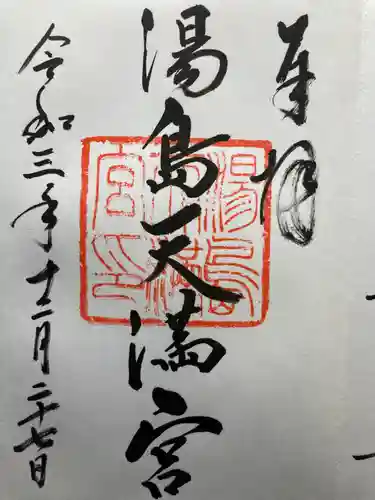 奉拝
湯島天満宮
令和三年十二月二十七日
湯島天満宮印